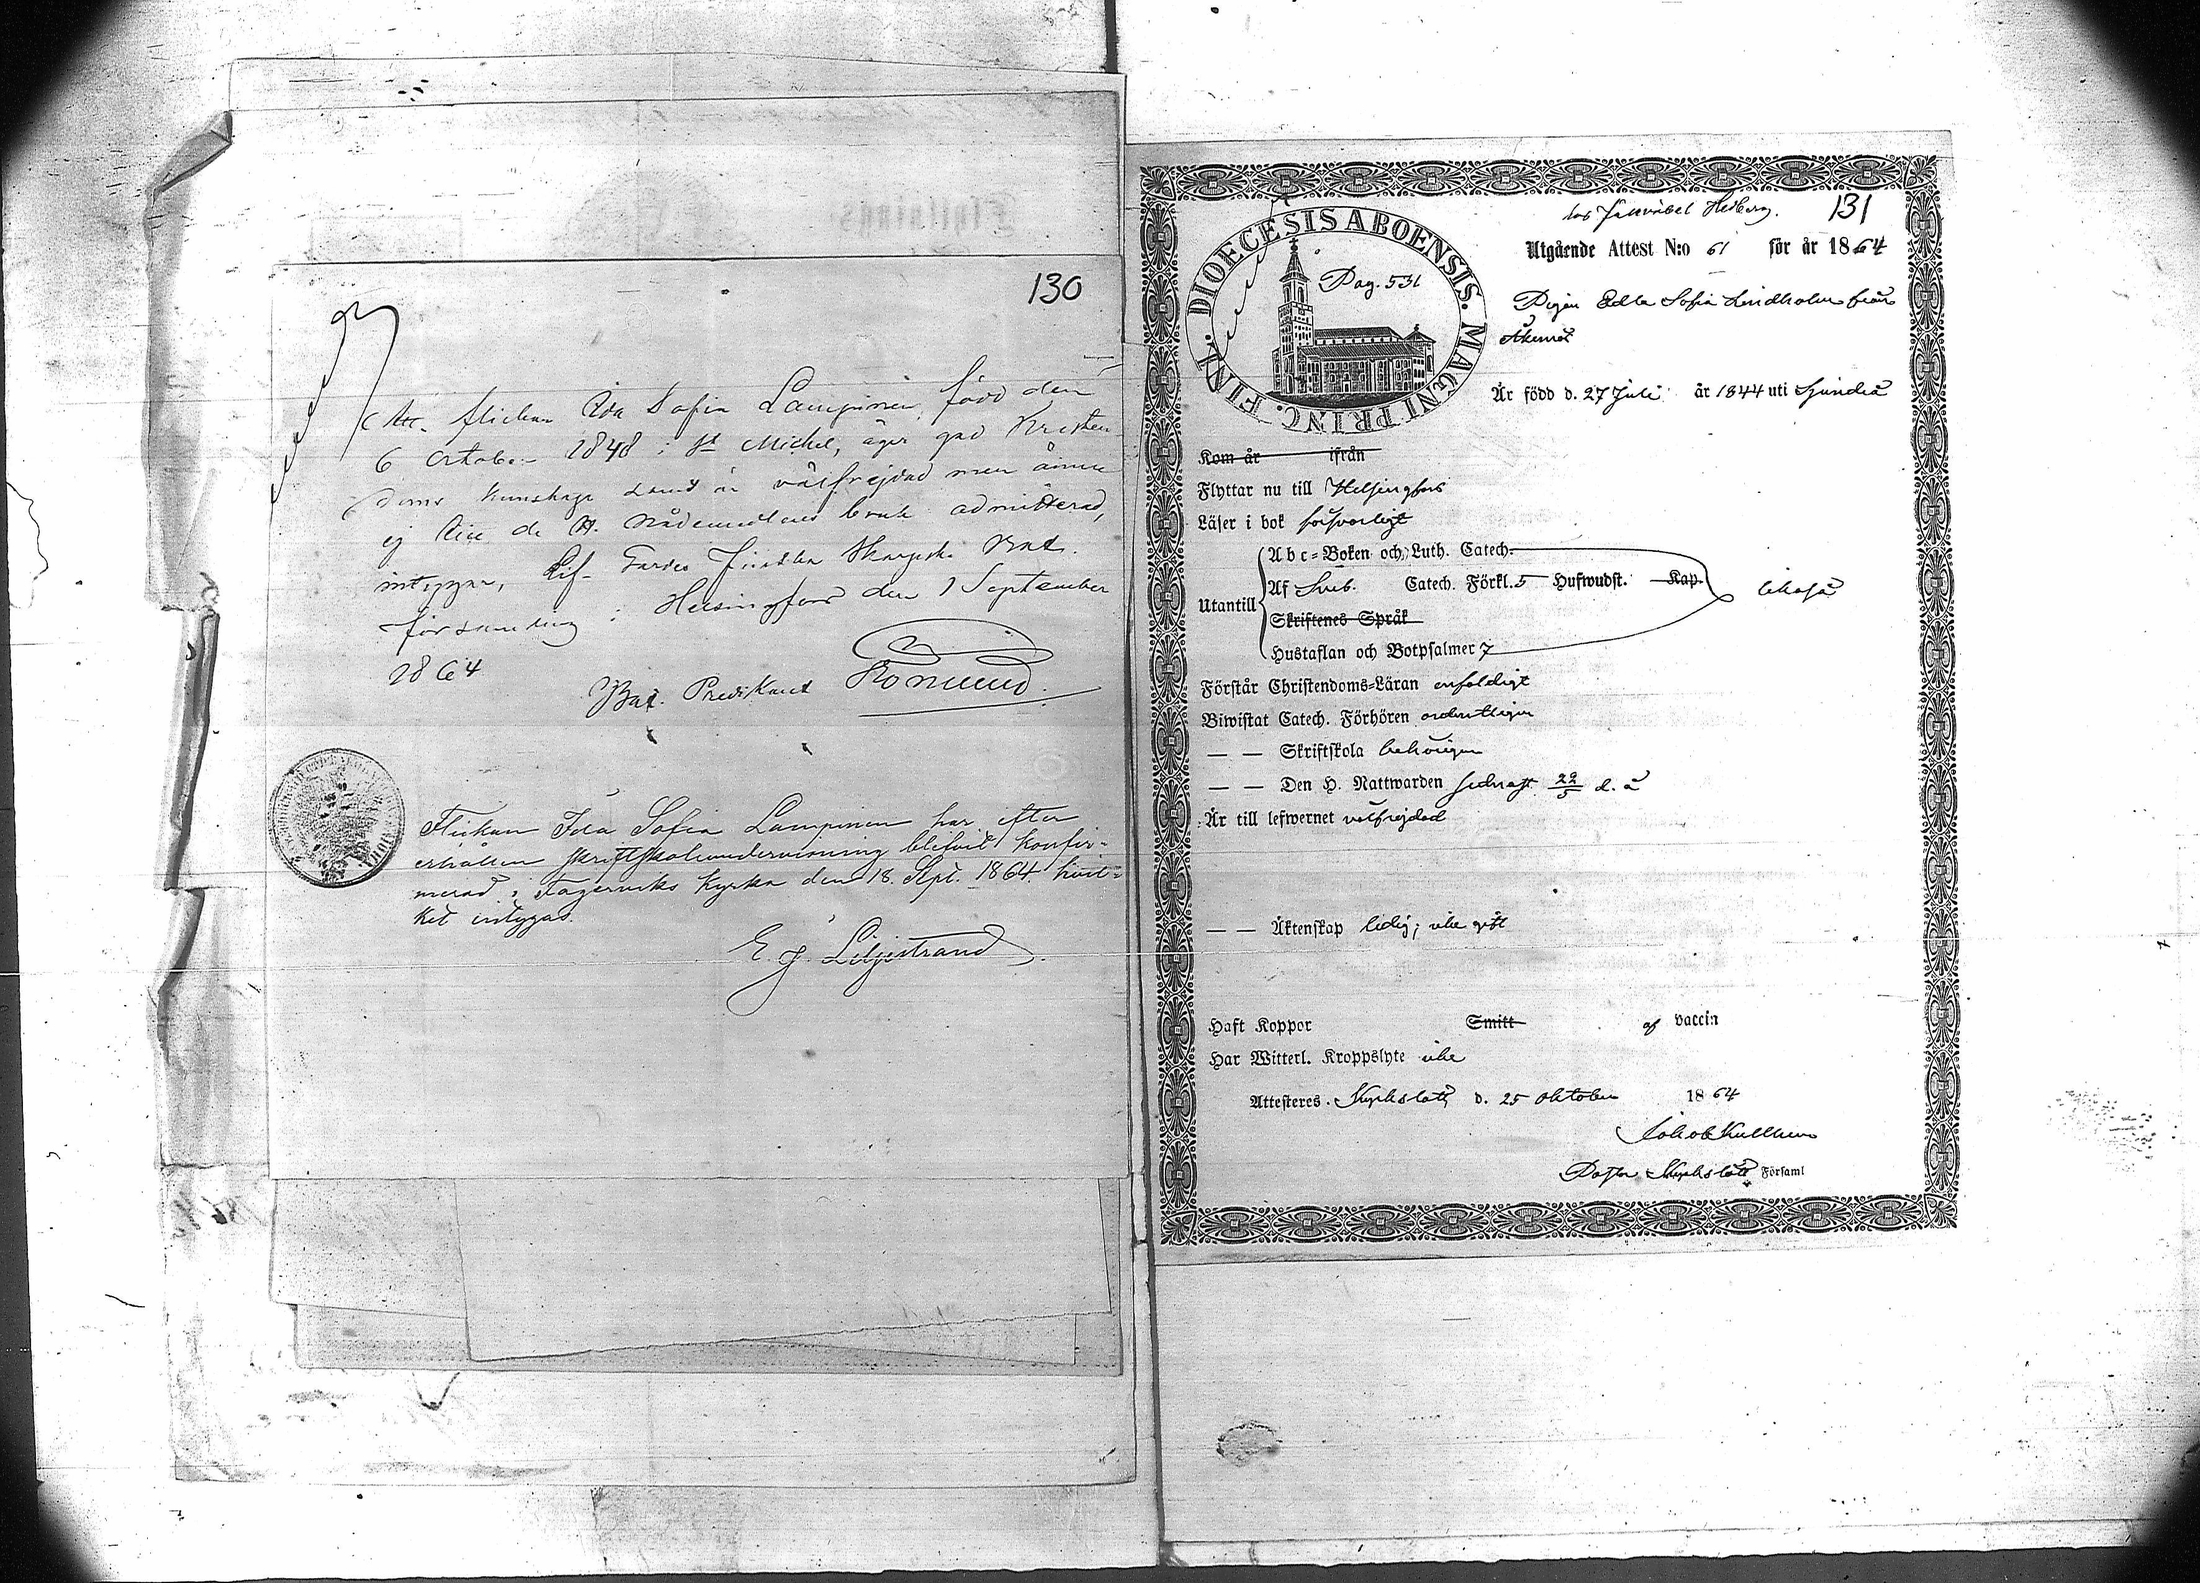 130
Att flickan Ida Sofia Lampinen, född den
6 October 1848 i St Michel, äger god Kristen
doms kunskap samt är välfrejdad men ännu
ej till de H. Nådemedlens bruk admitterad,
intygar, Lif-Gardes Finska Skarpsk. Bat.
församling i Helsingfors den 1 September
1864
Bat. Predikant
Flickan Ida Sofia Lampinen har efter
erhållen skriftskoleundervisning blifvit konfir-
merad i Fagerviks kyrka den 18. Sept. 1864. hvil-
ket intygas.
E. J. Liljestrand.
131
hos Hedberg.
DIOECESIS ABOENSIS. MAGNI PRINC. FINL.
Pag. 531
Utgående Attest N:o 61 för år 1864
Pigan Edla Sofia Lindholm från
Åkernäs
Är född d. 27 Juli år 1844 uti Sjundeå
Kom år ifrån
Flyttar nu till Helsingfors
Läser i bok försvarligt
Abc-Boken och Luth. Catech.
Af Sveb. Catech. Förkl. 5 Hufwudst. Kap.
Utantill
Skriftenes Språk
Hustaflan och Botpsalmer 7
likaså
Förstår Christendoms-Läran enfaldigt
Biwistat Catech. Förhören ordentligen
— — Skriftskola behörigen
— — Den H. Nattwarden sednast 22/5 d. å
Är till lefwernet välfrejdad
— — Äktenskap ledig; icke gift
Haft Koppor Smitt af vaccin
Har Witterl. Kroppslyte icke
Attesteres. Kyrkslätt, d. 25 Oktober 1864
Pastor Kyrkslätt Församl